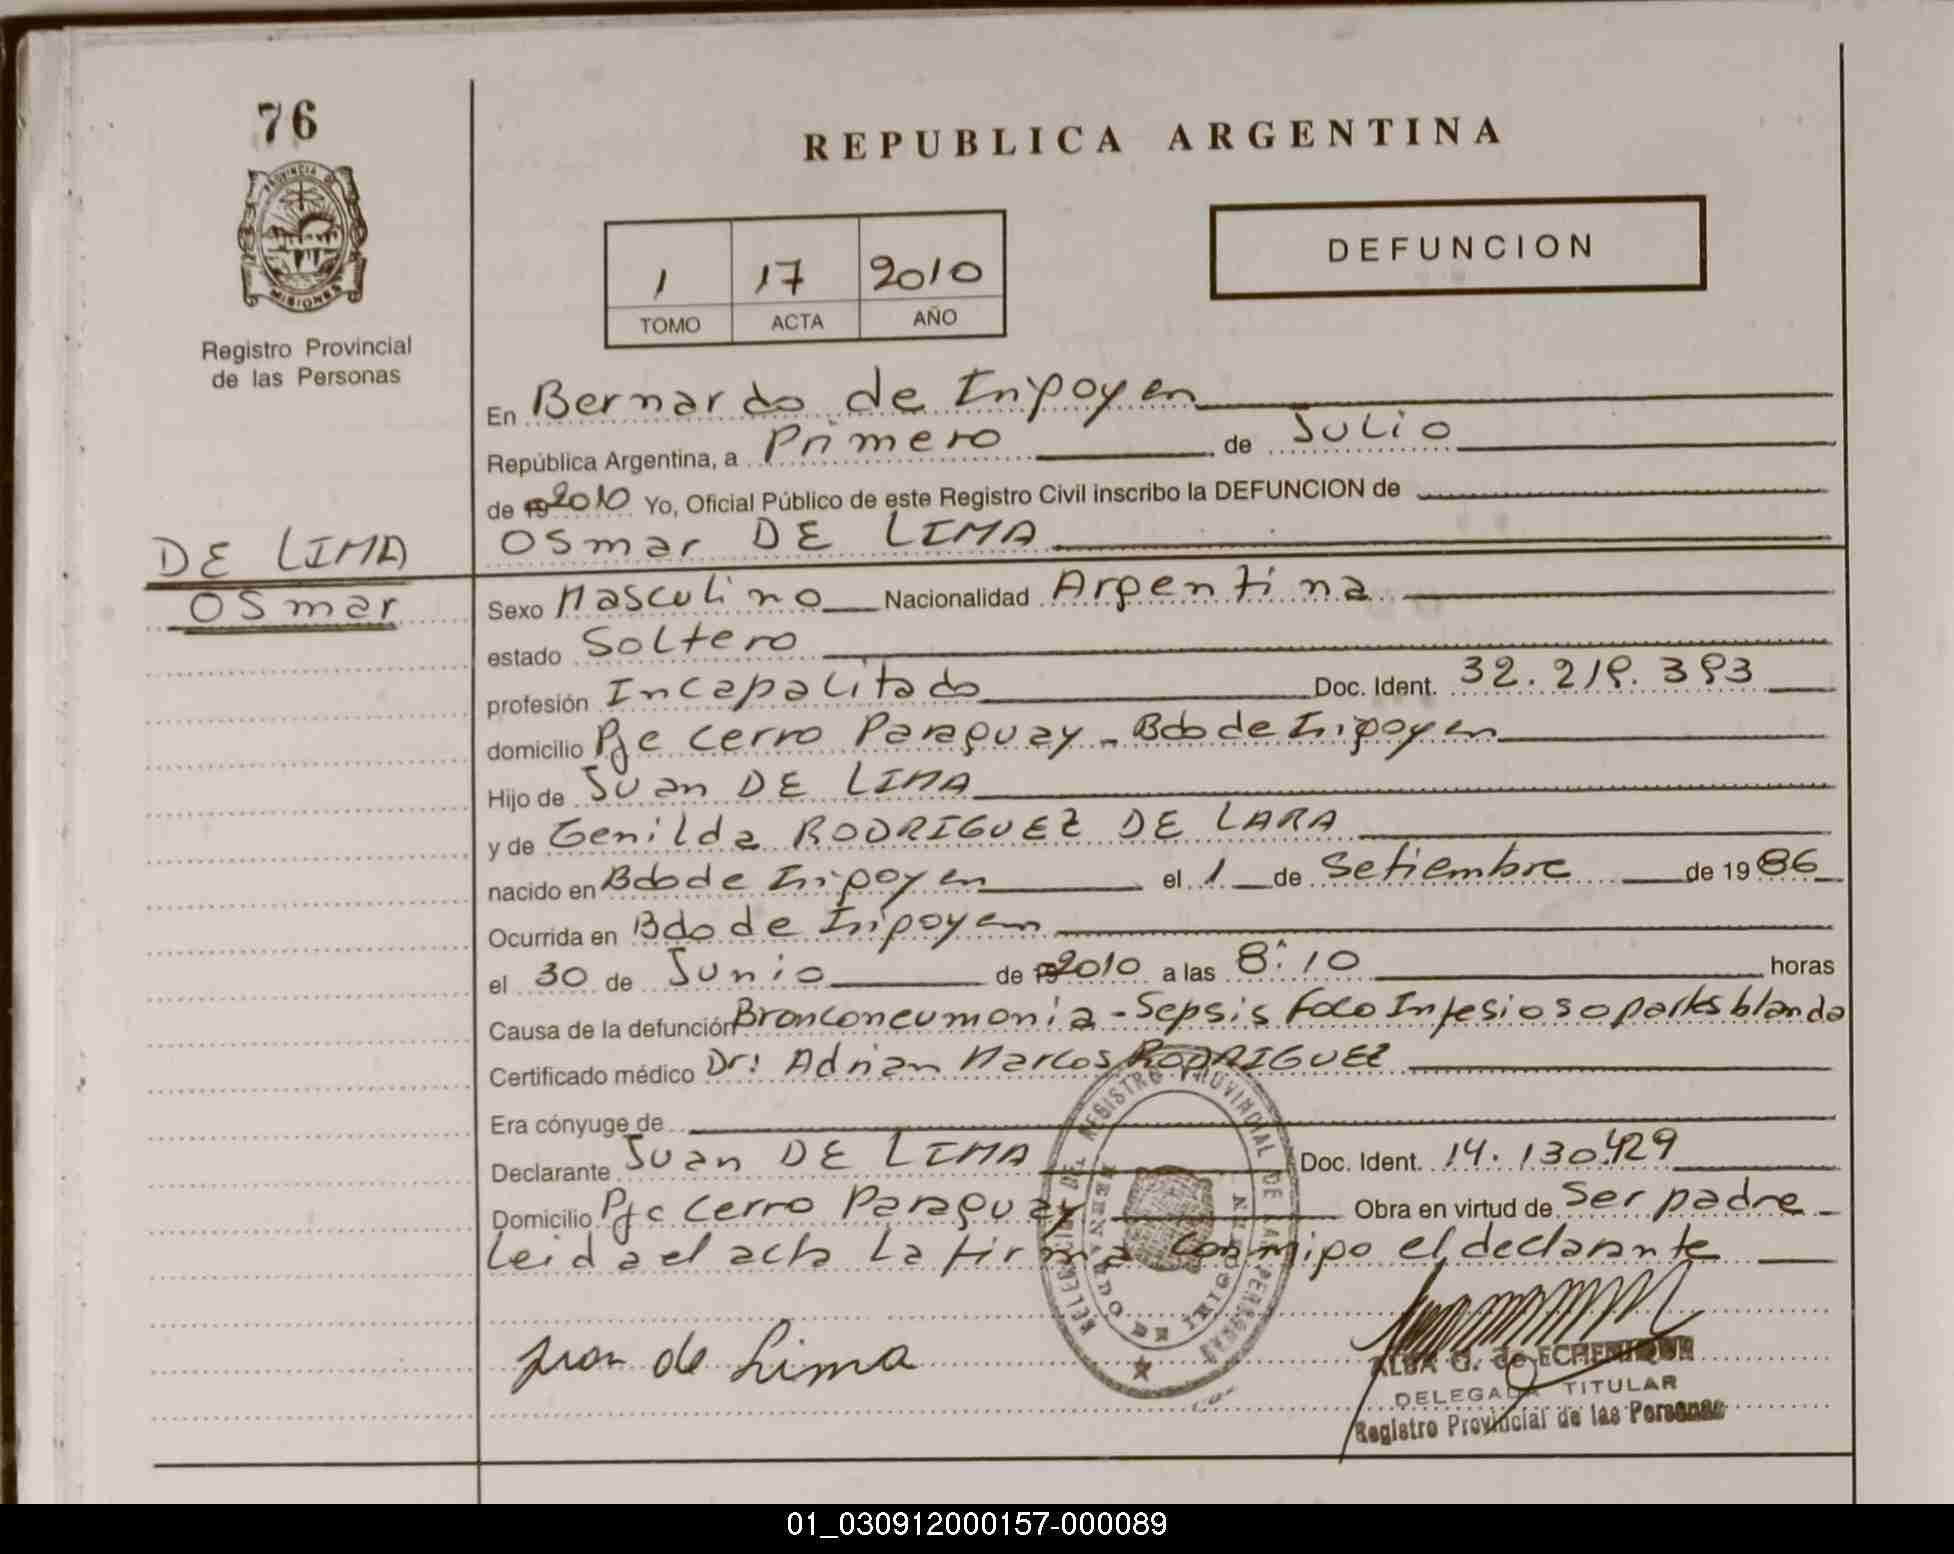 76
REPUBLICA ARGENTINA
PROVINCIA DE
MISIONES
Registro Provincial
de las Personas
DEFUNCION
1 17 2010
TOMO ACTA AÑO
En Bernardo de Irigoyen
República Argentina, a Primero de Julio
de 2010 Yo, Oficial Público de este Registro Civil inscribo la DEFUNCION de
DE LIMA
Osmar
Osmar DE LIMA
Sexo Masculino Nacionalidad Argentina
estado Soltero
profesión Incapalitado Doc. Ident. 32.219.393
domicilio Pje Cerro Paraguay - Bdo de Irigoyen
Hijo de Juan DE LIMA
y de Genilda RODRIGUEZ DE LARA
nacido en Bdo de Irigoyen el 1 de Setiembre de 1986
Ocurrida en Bdo de Irigoyen
el 30 de Junio de 2010 a las 8:10 horas
Causa de la defunción Bronconeumonia - Sepsis foco Infesioso partes blanda
Certificado médico Dr: Adrian Marcos RODRIGUEZ
Era cónyuge de
Declarante Juan DE LIMA Doc. Ident. 14.130.429
Domicilio Pje Cerro Paraguay Obra en virtud de Ser padre
Leida el acta la firma conmigo el declarante
Juan de Lima
DEL REGISTRO PROVINCIAL DE LAS PERSONAS
BERNARDO DE IRIGOYEN
ALBA G. de ECHENIQUE
DELEGADA TITULAR
Registro Provincial de las Personas
01_030912000157-000089